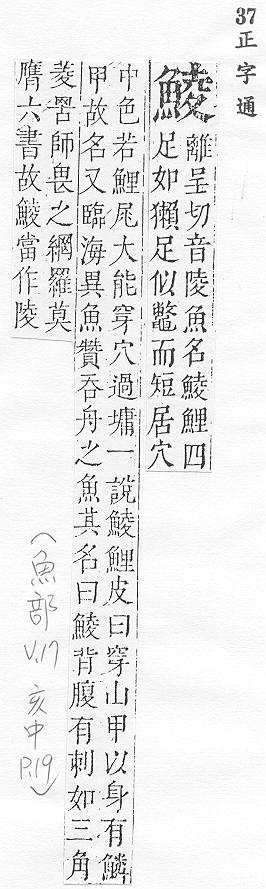 37正字通
鯪
離呈切音陵魚名鯪鯉四
足如獺足似鼈而短居穴
中色若鯉尾大能穿穴過墉一說鯪鯉皮曰穿山甲以身有鱗
甲故名又臨海異魚贊吞舟之魚其名曰鯪背腹有刺如三角
菱罟師畏之網羅莫
膺六書故鯪當作陵
(魚部 V.17 亥中 P.19)